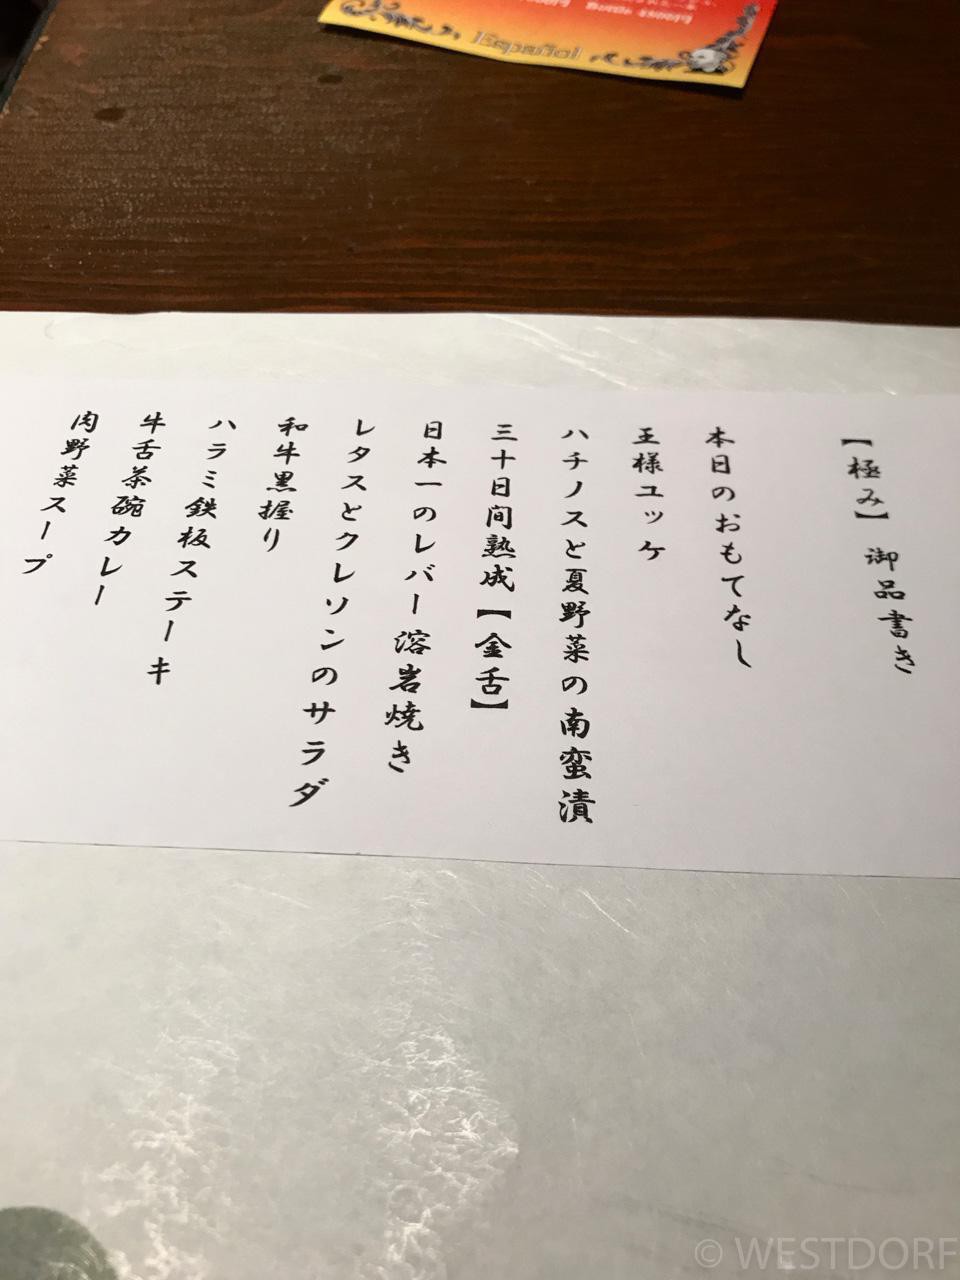 【極み】 御品書き
本日のおもてなし
王様ユッケ
ハチノスと夏野菜の南蛮漬
三十日間熟成【金舌】
日本一のレバー溶岩焼き
レタスとクレソンのサラダ
和牛黒握り
ハラミ鉄板ステーキ
牛舌茶碗カレー
肉野菜スープ
Español
© WESTDORF